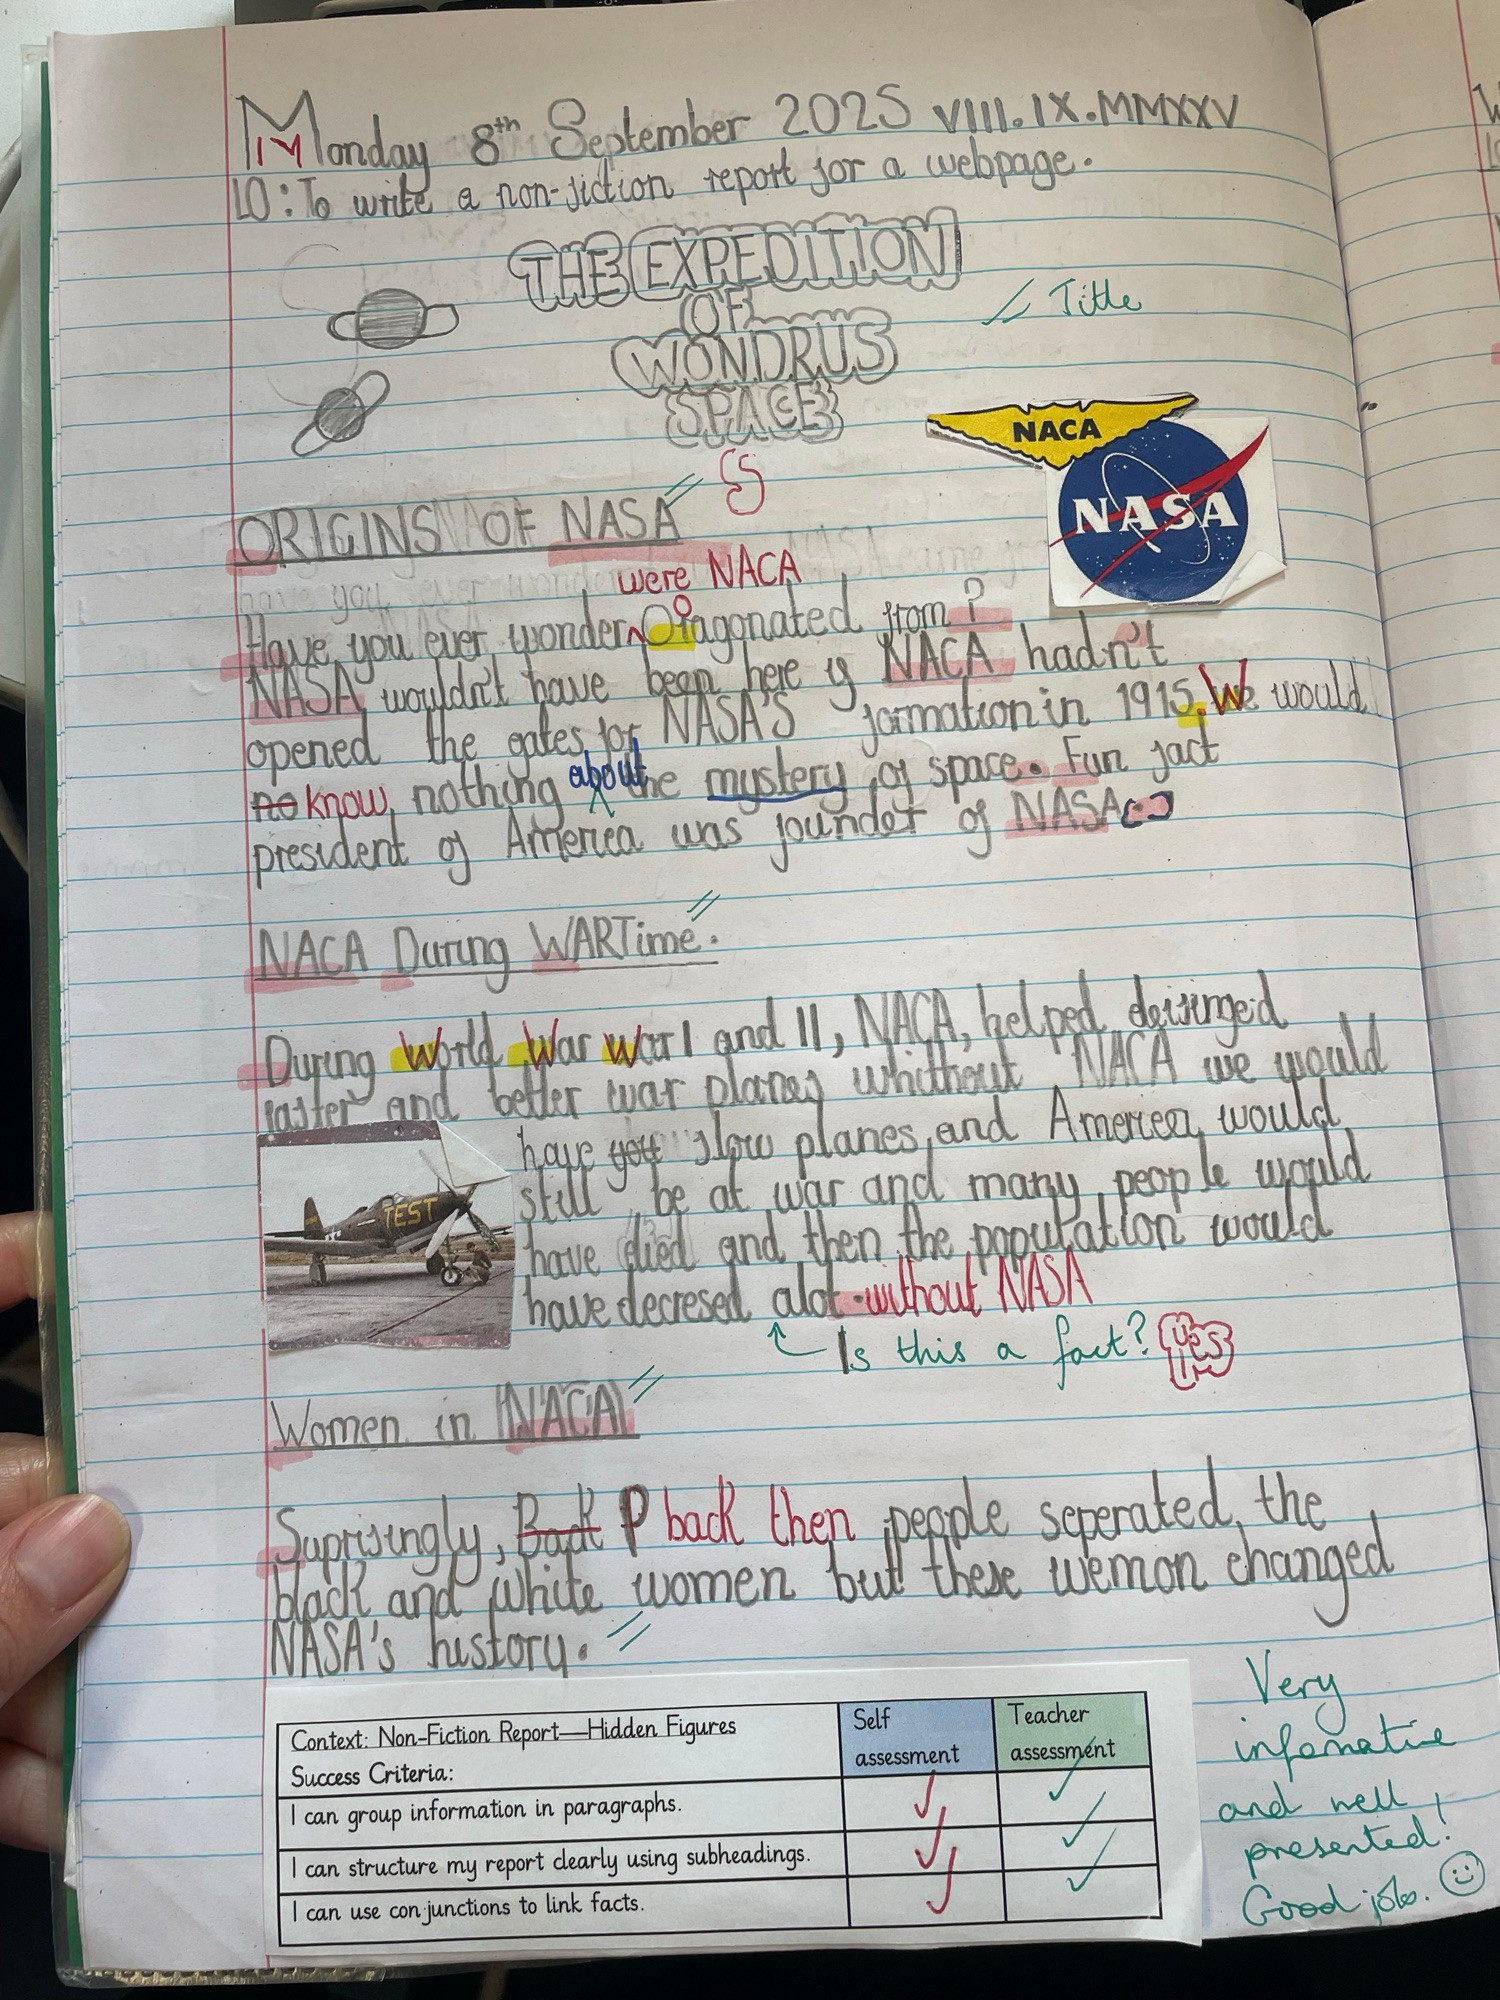 Monday 8th September 2025 VIII.IX.MMXXV
LO: To write a non-fiction report for a webpage.
THE EXPEDITION
OF
WONDRUS
SPACE
// Title
NACA
NASA
S
ORIGINS OF NASA
were NACA
Have you ever wonder Oiagonated from?
NASA wouldn't have been here if NACA hadn't
opened the gates for NASA'S formation in 1915. We would
no know nothing about the mystery of space. Fun fact
president of America was founder of NASA
NACA During WARTime.
During World War War I and II, NACA, helped desinged
faster and better war planes whithout NACA we would
have got slow planes and America would
still be at war and many people would
have died and then the population would
have decresed alot. without NASA
TEST
Is this a fact? Yes
Women in NACA
Suprisingly, Back P back then people seperated the
black and white women but these wemon changed
NASA's history.
Context: Non-Fiction Report—Hidden Figures
Success Criteria:
Self assessment
Teacher assessment
I can group information in paragraphs.
I can structure my report clearly using subheadings.
I can use conjunctions to link facts.
Very
infomative
and well
presented!
Good job.